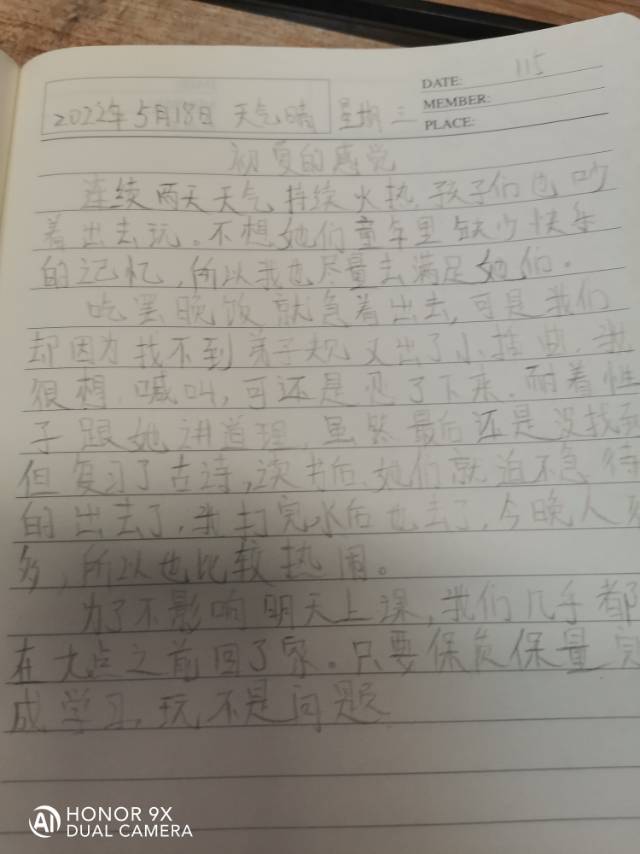 DATE: 115
MEMBER:
PLACE:
2022年5月18日 天气晴 星期三
初夏的感觉
连续两天天气持续火热,孩子们也吵
着出去玩。不想她们童年里缺少快乐
的记忆,所以我也尽量去满足她们。
吃罢晚饭就急着出去,可是我们
却因为找不到弟子规又出了小插曲,我
很想喊叫,可还是忍了下来,耐着性
子跟她讲道理,虽然最后还是没找到
但复习了古诗,读书后,她们就迫不急待
的出去了,我打完水后也去了,今晚人
多,所以也比较热闹。
为了不影响明天上课,我们几乎都
在九点之前回了家。只要保质保量完
成学习,玩不是问题
HONOR 9X
DUAL CAMERA